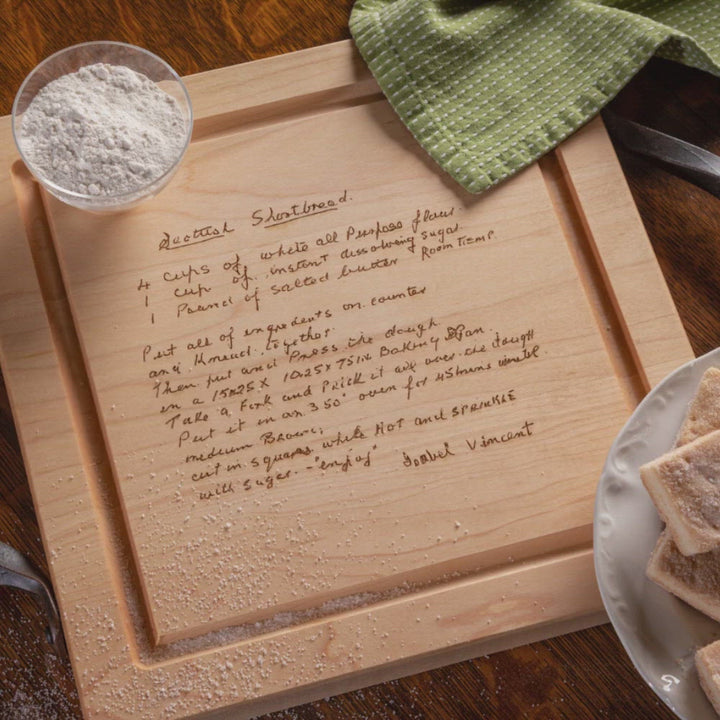 Scottish Shortbread.
4 cups of white all Purpose flour.
1 cup of instant dissolving sugar
1 Pound of salted butter Room Temp.
Put all of ingredents on counter
and Knead together.
Then put and Press the dough
in a 15x25 x 10x25 x 75 in Baking Pan.
Take a Fork and Prick it all over the dough
Put it in an 350° oven for 45 mins until
medium Brown;
cut in squares while Hot and SPRINKLE
with Suger. - "enjoy" Isabel Vincent